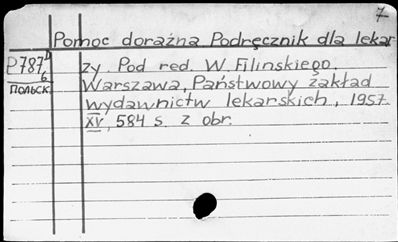 7
Pomoc doraźna Podręcznik dla lekar
P787 D
6
ПОЛЬСК.
zy. Pod red. W. Filinskiego.
Warszawa, Państwowy zakład
wydawnictw lekarskich, 1957
XV, 584 s. z obr.